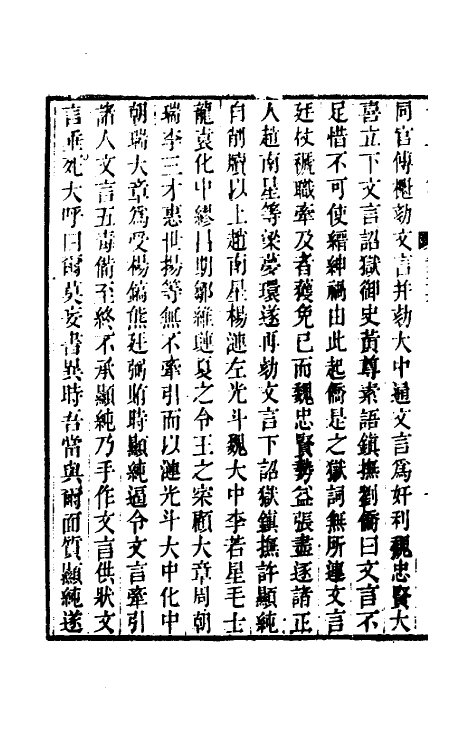 同官傅櫆劾文言并劾大中通文言爲奸利魏忠賢大
喜立下文言詔獄御史黃尊素語鎮撫劉僑曰文言不
足惜不可使縉紳禍由此起僑是之獄詞無所連文言
廷杖褫職牽及者獲免已而魏忠賢勢益張盡逐諸正
人趙南星等梁夢環遂再劾文言下詔獄鎮撫許顯純
自削牘以上趙南星楊漣左光斗魏大中李若星毛士
龍袁化中繆昌期鄒維璉夏之令王之寀顧大章周朝
瑞李三才惠世揚等無不牽引而以漣光斗大中化中
朝瑞大章爲受楊鎬熊廷弼賄時顯純逼令文言牽引
諸人文言五毒備至終不承顯純乃手作文言供狀文
言垂死大呼曰爾莫妄書異時吾當與爾面質顯純遂